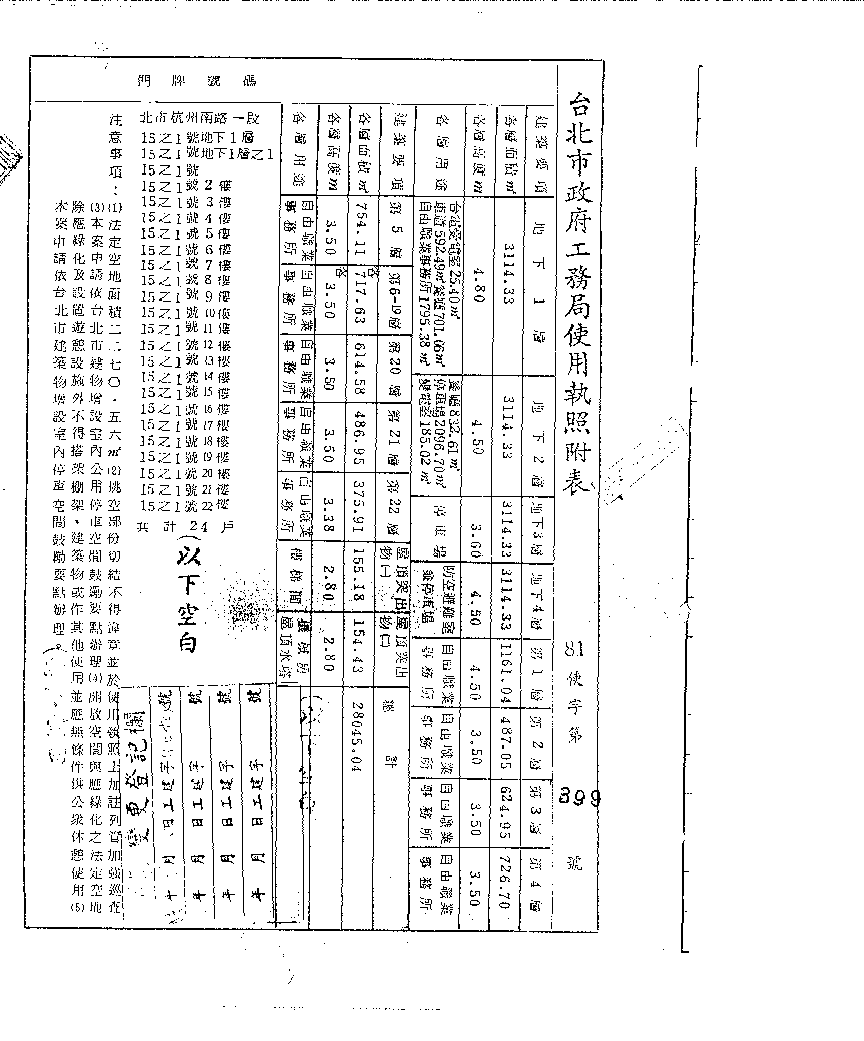 台北市政府工務局使用執照附表
81 使字第 399 號
建築要項 地下1層 地下2層 地下3層 地下4層 第1層 第2層 第3層 第4層
各層面積㎡ 3114.33 3114.33 3114.33 3114.33 1161.04 487.05 624.95 726.70
各層高度m 4.80 4.50 3.60 4.50 4.50 3.50 3.50 3.50
各層用途
台電受電室25.40㎡
車道592.49㎡ 701.06㎡
自由職業事務所1795.38㎡
832.61㎡
停車場2096.70㎡
185.02㎡
停車場
防空避難室兼停車場
自由職業事務所
自由職業事務所
自由職業事務所
自由職業事務所
建築要項 第5層 第6-19層 第20層 第21層 第22層 屋頂突出物 屋頂突出物 總計
各層面積㎡ 754.11 各717.63 614.58 486.95 375.91 155.18 154.43 28045.04
各層高度m 3.50 各3.50 3.50 3.50 3.38 2.80 2.80
各層用途
自由職業事務所
自由職業事務所
自由職業事務所
自由職業事務所
自由職業事務所
樓梯間
屋頂水塔
門牌號碼
北市杭州南路一段
15之1號地下1層
15之1號地下1層之1
15之1號
15之1號2樓
15之1號3樓
15之1號4樓
15之1號5樓
15之1號6樓
15之1號7樓
15之1號8樓
15之1號9樓
15之1號10樓
15之1號11樓
15之1號12樓
15之1號13樓
15之1號14樓
15之1號15樓
15之1號16樓
15之1號17樓
15之1號18樓
15之1號19樓
15之1號20樓
15之1號21樓
15之1號22樓
共計24戶
(以下空白)
變更登記欄
年月日工建字 號
年月日工建字 號
年月日工建字 號
年月日工建字 號
注意事項：(1)法定空地面積二二七〇．五六㎡(2)挑空部份切結不得違章並於使用執照上加註列管加強巡查
(3)本案申請依台北市建物增設室內公用停車空間鼓勵要點辦理(4)開放空間與應綠化之法定空地
除應綠化及設置遊憩設施外不得搭架棚架、建築物或作其他使用並應無條件供公眾休憩使用(5)
本案申請依台北市建築物增設室內停車空間鼓勵要點辦理。